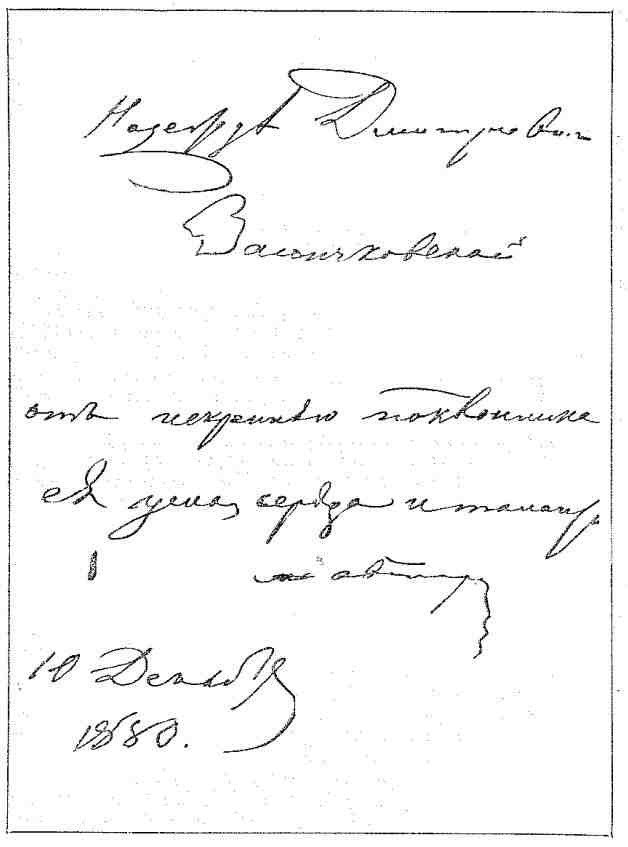 Надеждѣ Дмитріевнѣ
Заіончковской
отъ искренняго поклонника
ея ума, сердца и таланта
автора
10 Декабря
1880.